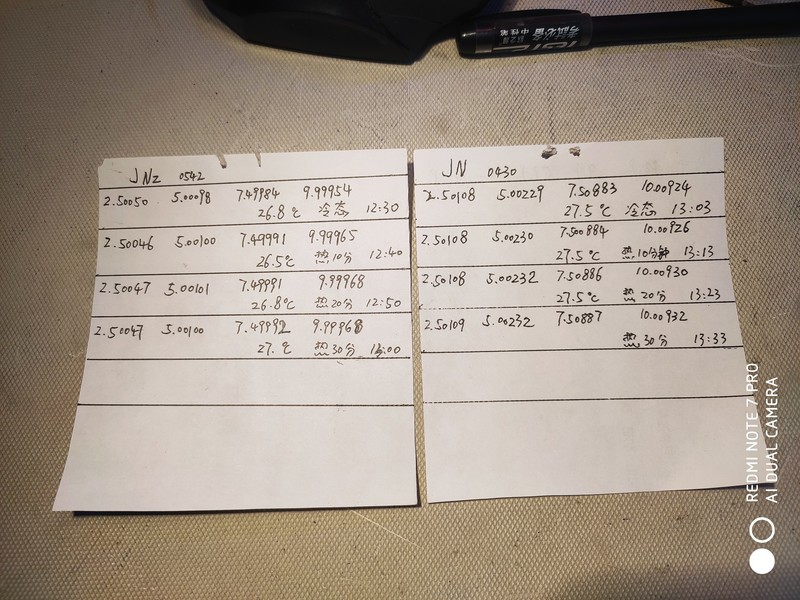 考试必备
中性笔
JNz 0542
2.50050 5.00098 7.49984 9.99954
26.8℃ 冷态 12:30
2.50046 5.00100 7.49991 9.99965
26.5℃ 热10分 12:40
2.50047 5.00101 7.49991 9.99968
26.8℃ 热20分 12:50
2.50047 5.00100 7.49992 9.99968
27.℃ 热30分 13:00
JN 0430
2.50108 5.00229 7.50883 10.00924
27.5℃ 冷态 13:03
2.50108 5.00230 7.500884 10.00926
27.5℃ 热10分钟 13:13
2.50108 5.00232 7.50886 10.00930
27.5℃ 热20分 13:23
2.50109 5.00232 7.50887 10.00932
热30分 13:33
REDMI NOTE 7 PRO
AI DUAL CAMERA